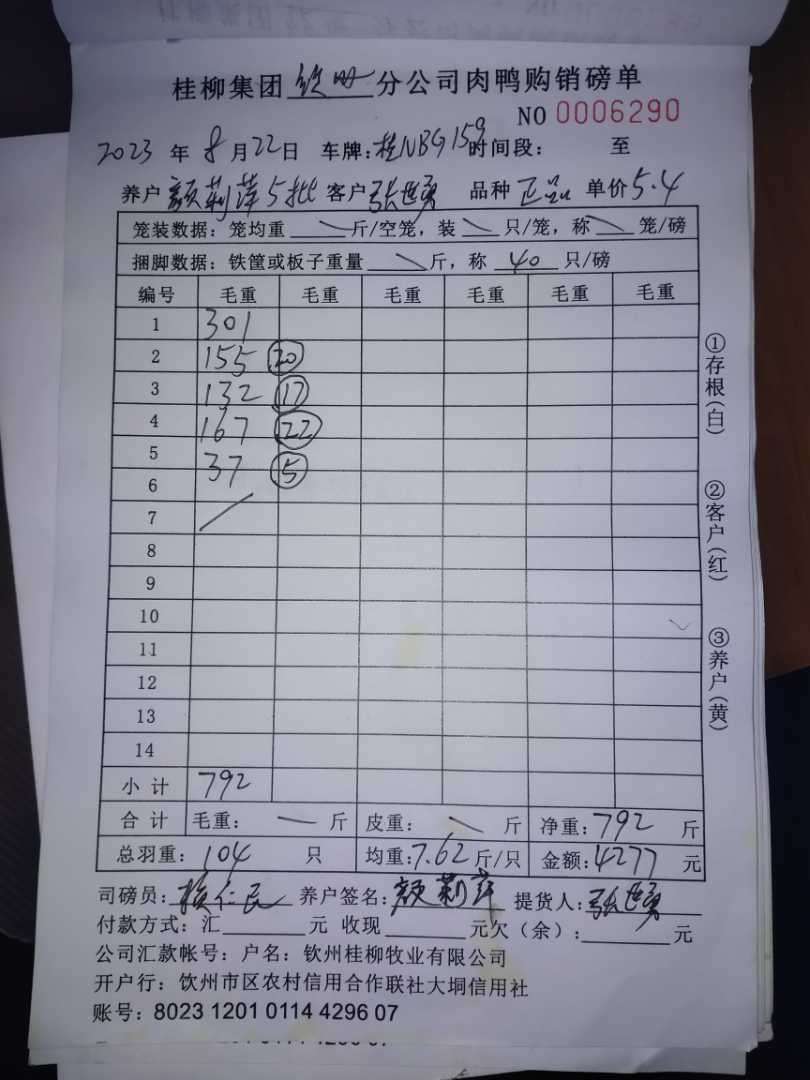 桂柳集团 钦州 分公司肉鸭购销磅单
NO 0006290
2023 年 8 月 22 日 车牌:桂NBG159 时间段: 至
养户 颜莉萍5批 客户 张世勇 品种 正品 单价 5.4
笼装数据: 笼均重 斤/空笼, 装 只/笼, 称 笼/磅
捆脚数据: 铁筐或板子重量 斤, 称 40 只/磅
编号 毛重 毛重 毛重 毛重 毛重 毛重
1 301
2 155 20
3 132 17
4 167 22
5 37 5
6
7
8
9
10
11
12
13
14
小计 792
合计 毛重: 斤 皮重: 斤 净重: 792 斤
总羽重: 104 只 均重: 7.62 斤/只 金额: 4277 元
司磅员: 仁民 养户签名: 颜莉萍 提货人: 张世勇
付款方式: 汇 元 收现 元欠(余): 元
公司汇款帐号: 户名: 钦州桂柳牧业有限公司
开户行: 饮州市区农村信用合作联社大垌信用社
账号: 8023 1201 0114 4296 07
①存根(白)
②客户(红)
③养户(黄)